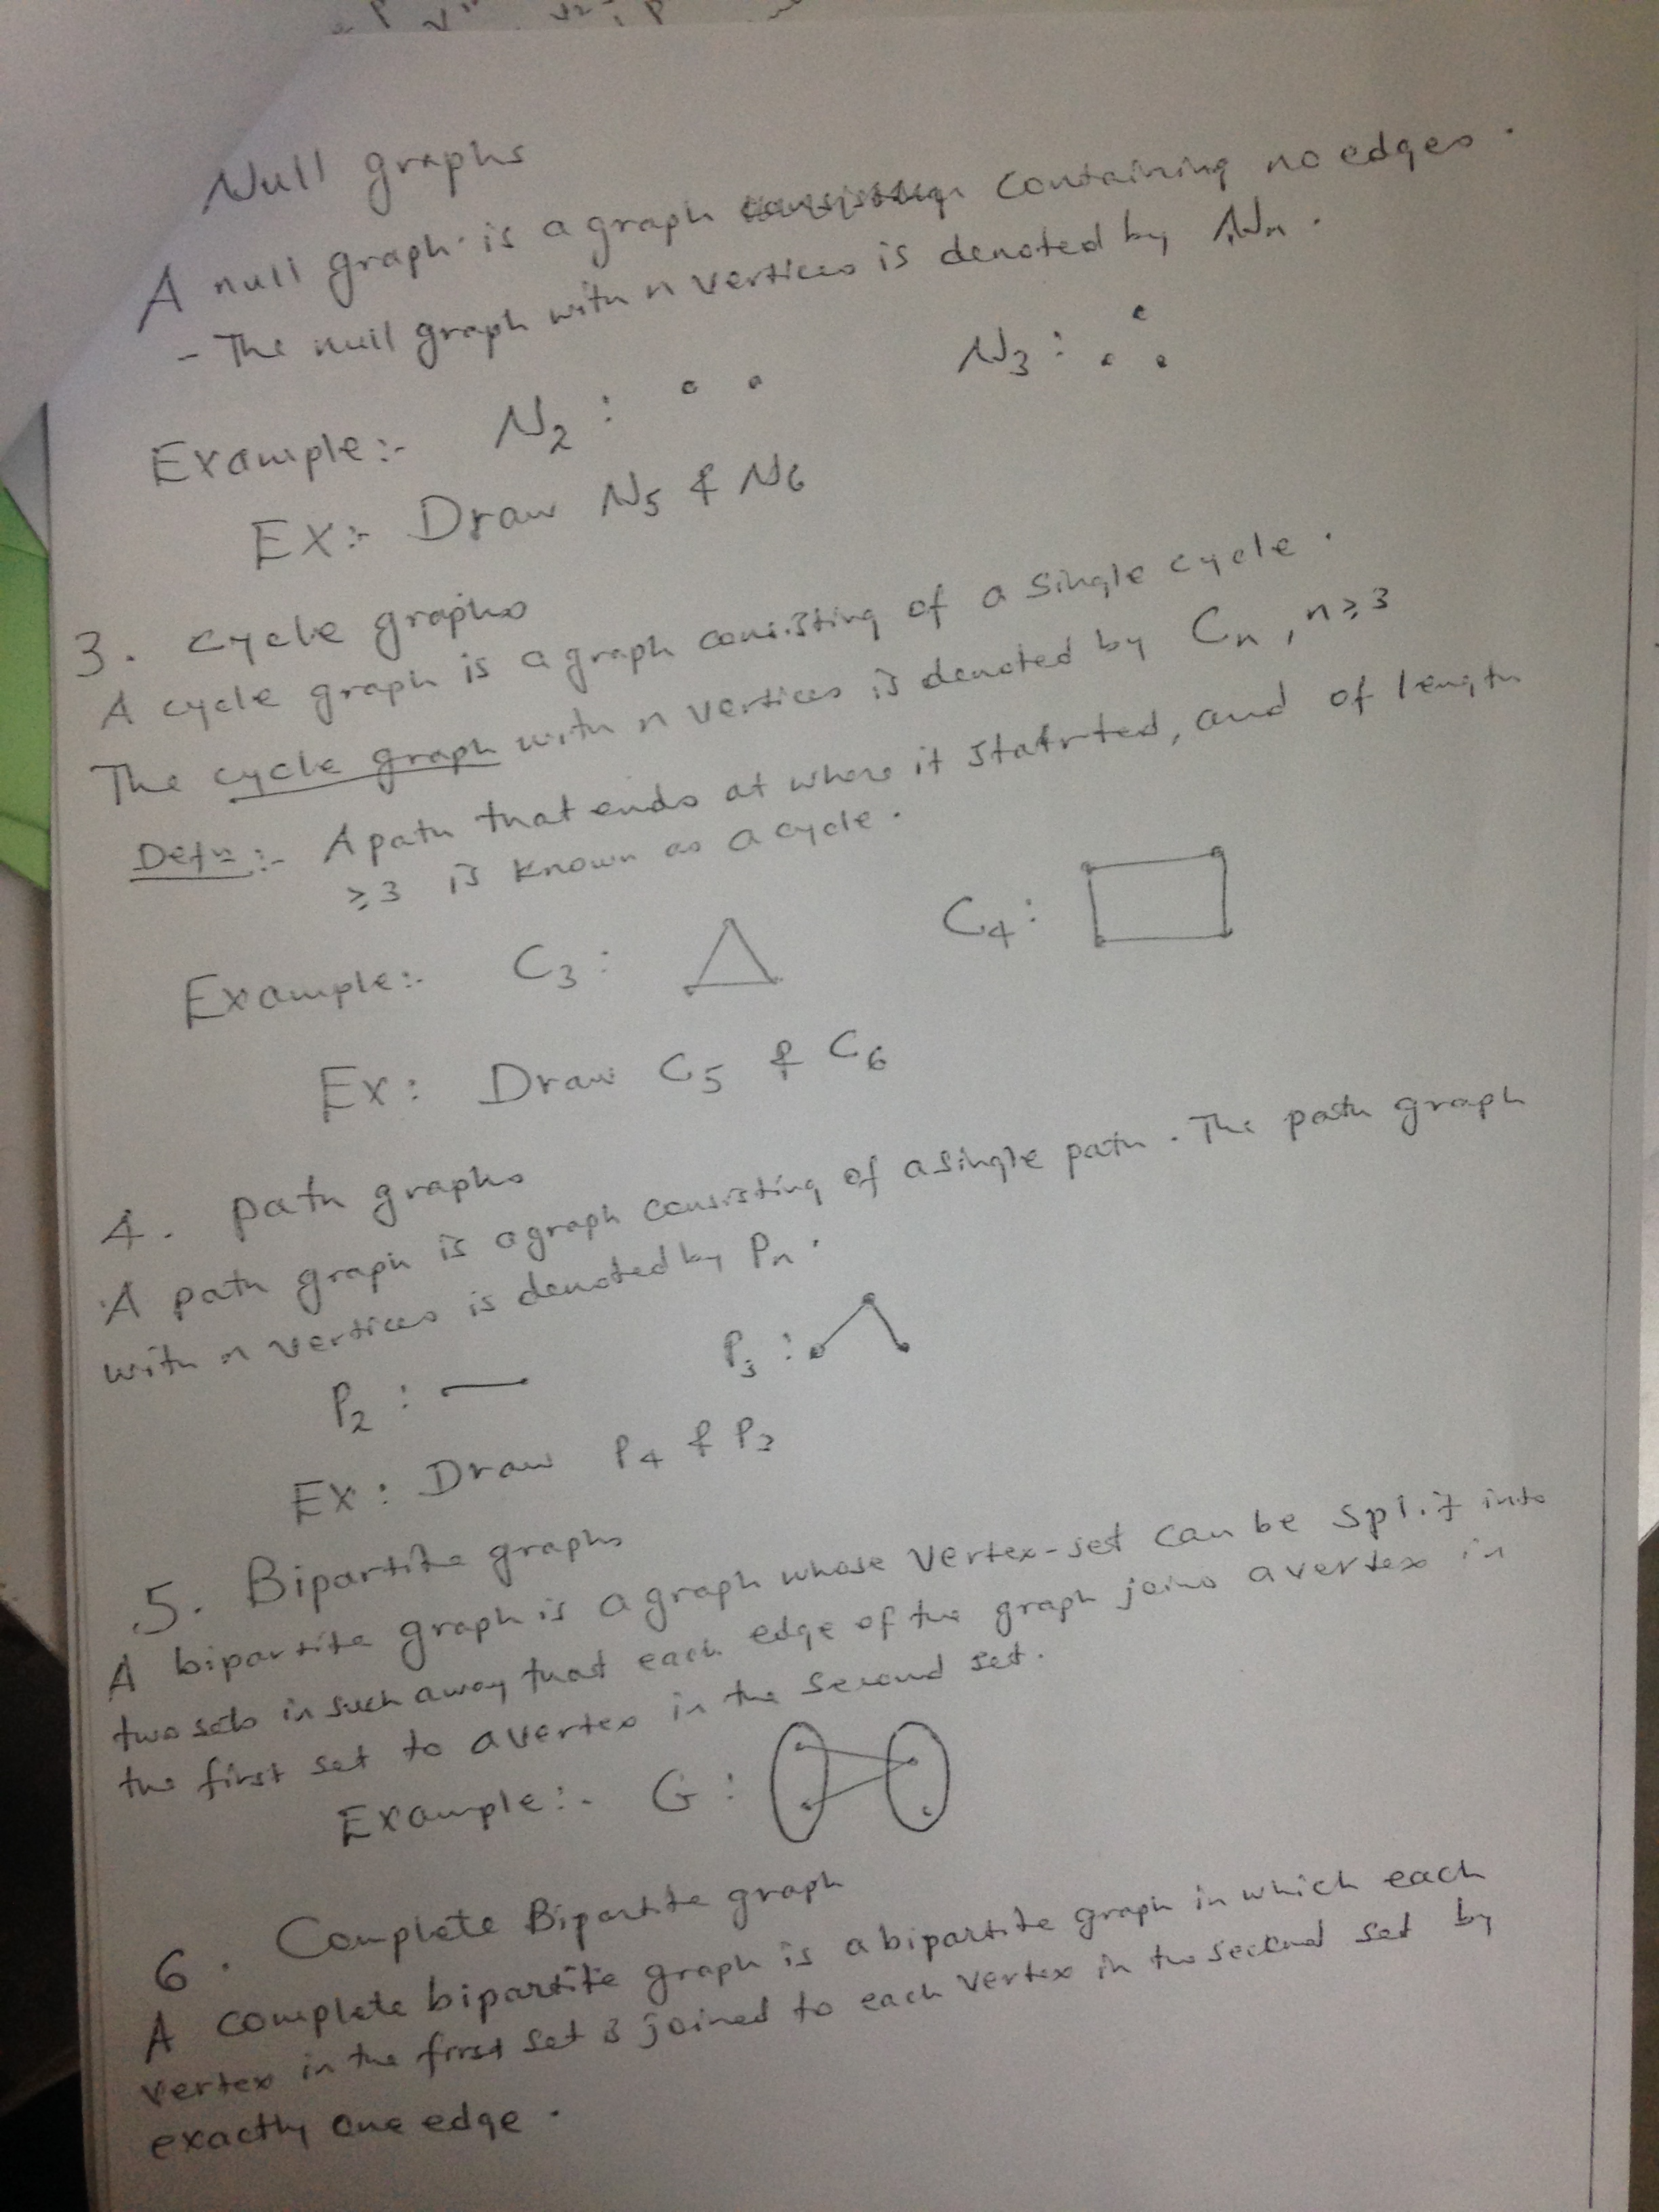 Null graphs
A null graph is a graph containing no edges.
- The null graph with n vertices is denoted by Nn.
Example:- N2: N3:
Ex:- Draw N5 & N6
3. cycle graphs
A cycle graph is a graph consisting of a single cycle.
The cycle graph with n vertices is denoted by Cn, n≥3
Defn:- A path that ends at where it statrted, and of length
≥3 is known as a cycle.
Example:- C3: C4:
Ex: Draw C5 & C6
4. path graphs
A path graph is a graph consisting of a single path. The path graph
with n vertices is denoted by Pn.
P2: P3:
Ex: Draw P4 &
5. Bipartite graphs
A bipartite graph is a graph whose vertex-set can be split into
two sets in such away that each edge of the graph joins a vertex in
the first set to a vertex in the second set.
Example:- G:
6. Complete Bipartite graph
A complete bipartite graph is a bipartite graph in which each
vertex in the first set is joined to each vertex in the second set by
exactly one edge.